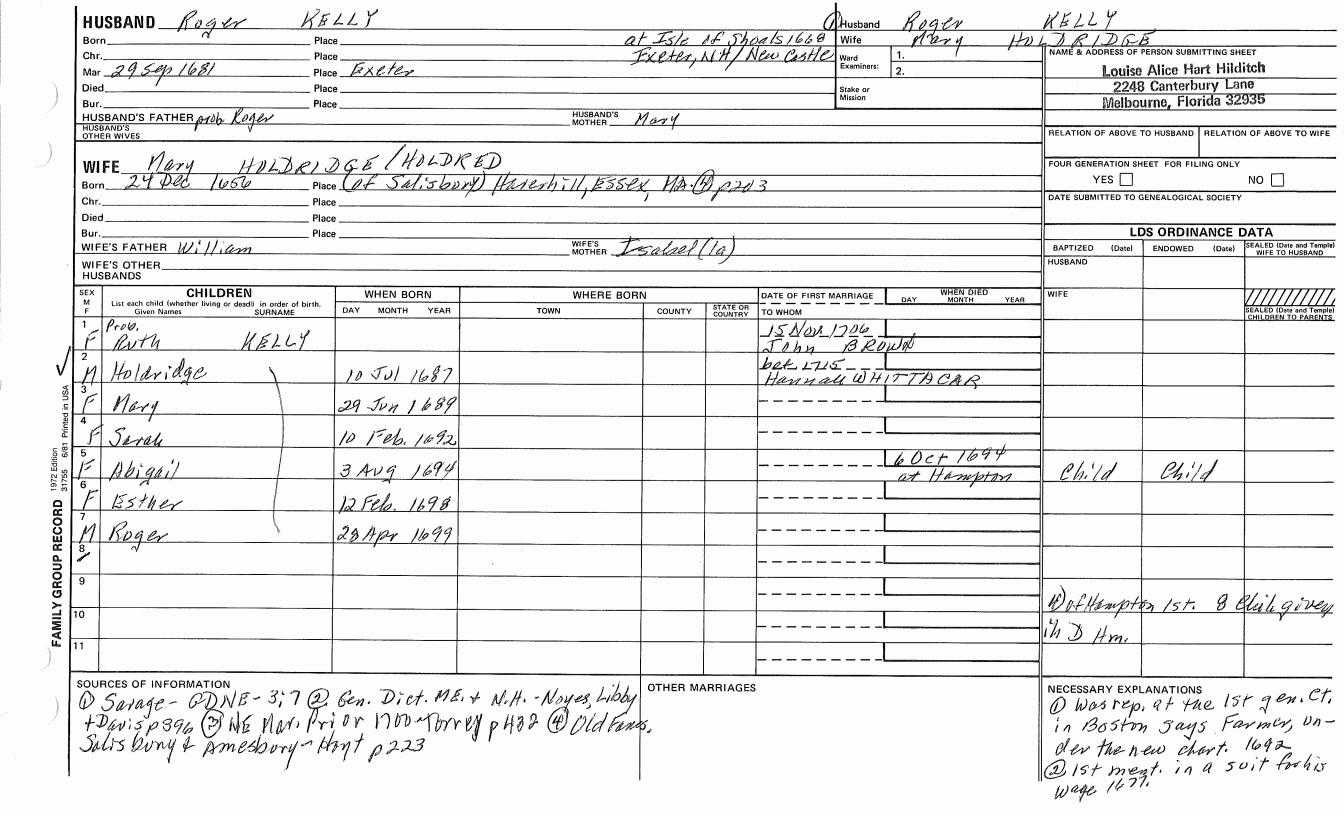 HUSBAND Roger KELLY
Born Place at Isle of Shoals 1668
Chr. Place Exeter, NH/New Castle
Mar 29 Sep 1681 Place Exeter
Died Place
Bur. Place
HUSBAND'S FATHER prob Roger HUSBAND'S MOTHER Mary
HUSBAND'S OTHER WIVES
WIFE Mary HOLDRIDGE/HOLDRED
Born 24 Dec 1656 Place (of Salisbury) Haverhill, Essex, MA. ④ p203
Chr. Place
Died Place
Bur. Place
WIFE'S FATHER William WIFE'S MOTHER Isabel (1a)
WIFE'S OTHER HUSBANDS
① Husband Roger KELLY
Wife Mary HOLDRIDGE
Ward Examiners: 1.
2.
Stake or Mission
NAME & ADDRESS OF PERSON SUBMITTING SHEET
Louise Alice Hart Hilditch
2248 Canterbury Lane
Melbourne, Florida 32935
RELATION OF ABOVE TO HUSBAND RELATION OF ABOVE TO WIFE
FOUR GENERATION SHEET FOR FILING ONLY
YES NO
DATE SUBMITTED TO GENEALOGICAL SOCIETY
LDS ORDINANCE DATA
BAPTIZED (Date) ENDOWED (Date) SEALED (Date and Temple) WIFE TO HUSBAND
HUSBAND
WIFE
SEALED (Date and Temple) CHILDREN TO PARENTS
SEX M F CHILDREN WHEN BORN WHERE BORN DATE OF FIRST MARRIAGE WHEN DIED
List each child (whether living or dead) in order of birth.
Given Names SURNAME DAY MONTH YEAR TOWN COUNTY STATE OR COUNTRY TO WHOM DAY MONTH YEAR
1 Prob. 15 Nov 1706
F Ruth KELLY John BROWN
2 bet 1715
M Holdridge 10 Jul 1687 Hannah WHITTACAR
3
F Mary 29 Jun 1689
4
F Sarah 10 Feb. 1692
5 6 Oct 1694
F Abigail 3 Aug 1694 at Hampton Child Child
6
F Esther 12 Feb. 1698
7
M Roger 28 Apr 1699
8
9
④ of Hampton 1st. 8 Chil. given
10
in D Hm.
11
FAMILY GROUP RECORD 1972 Edition 31755 6/81 Printed in USA
SOURCES OF INFORMATION
① Savage - GDNE - 3;7 ② Gen. Dict. ME. & N.H. - Noyes, Libby
+ Davis p396 ③ NE Mar. Prior 1700 - Torrey p432 ④ Old Fams.
Salisbury & Amesbury - Hoyt p223
OTHER MARRIAGES
NECESSARY EXPLANATIONS
① Was rep. at the 1st gen. Ct.
in Boston says Farmer, un-
der the new chart. 1692
② 1st ment. in a suit for his
wage 1677.